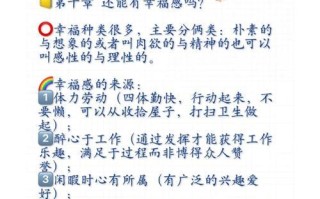 第十章 还能有幸福感吗？
⭕幸福种类很多，主要分俩类：朴素的
与想象的或者叫肉欲的与精神的也可以
叫感性的与理性的。
🌈幸福感的来源：
1️⃣体力劳动（四体勤快，行动起来，不
要懒，可以从收拾屋子，打扫卫生做
起）；
2️⃣醉心于工作（通过发挥才能获得工作
乐趣，满足于过程而非博得众人赞
誉）；
3️⃣闲暇时心有所属（有广泛的兴趣爱
好）；